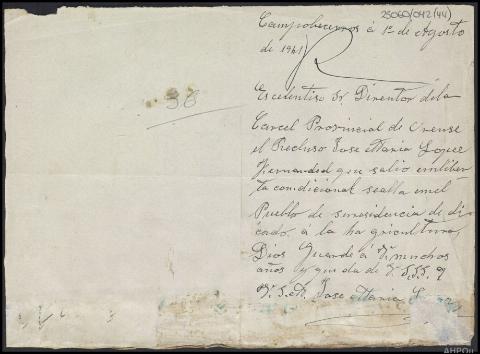 25060/042(44)
Campobecerros á 1º de Agosto
de 1941
38
Escelentiso Sr Dirertor dela
Carcel Provincial de Orense
el Recluso Jose Maria Lopez
Hernandes que salio enliber
ta condicional sealla enel
Pueblo de suresidencia de di
cado á la ha gricultura
Dios Guarde á V. muchos
años y queda de V. S.S.S. q
Jose Maria
AHPOu